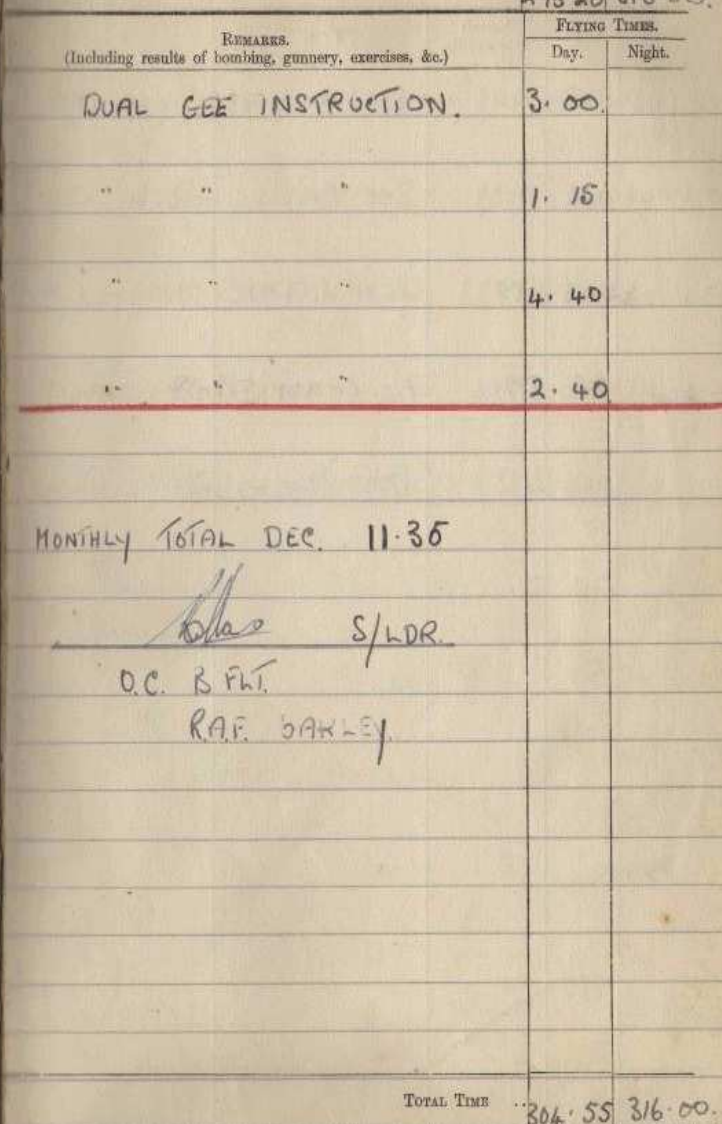 REMARKS.
(Including results of bombing, gunnery, exercises, &c.)
FLYING TIMES.
Day. Night.
DUAL GEE INSTRUCTION. 3.00.
" " " 1.15
" " " 4.40
" " " 2.40
MONTHLY TOTAL DEC. 11.35
S/LDR.
O.C. B FLT.
R.A.F. OAKLEY.
TOTAL TIME .. 304.55 316.00.